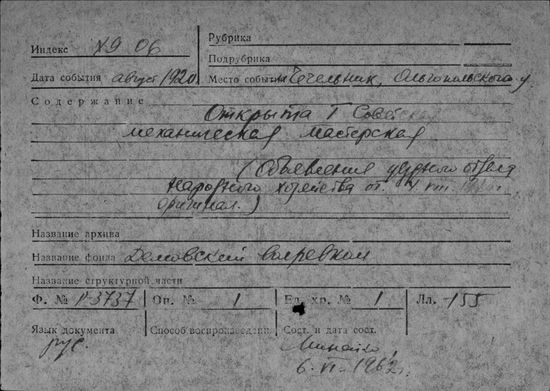 Индекс X9 06
Рубрика
Подрубрика
Дата события август 1920
Место события Чечельник, Ольгопольского у.
Содержание
Открыта I Советская
механическая мастерская
(Объявления уездного отдела
народного хозяйства от VIII
оригинал.)
Название архива
Название фонда Демовский волревком
Название структурной части
Ф. № Р-3737 Оп. № 1 Ед. хр. № 1 Лл. 155
Язык документа Способ воспроизведения Сост. и дата сост.
рус.
6.VI.1962г.